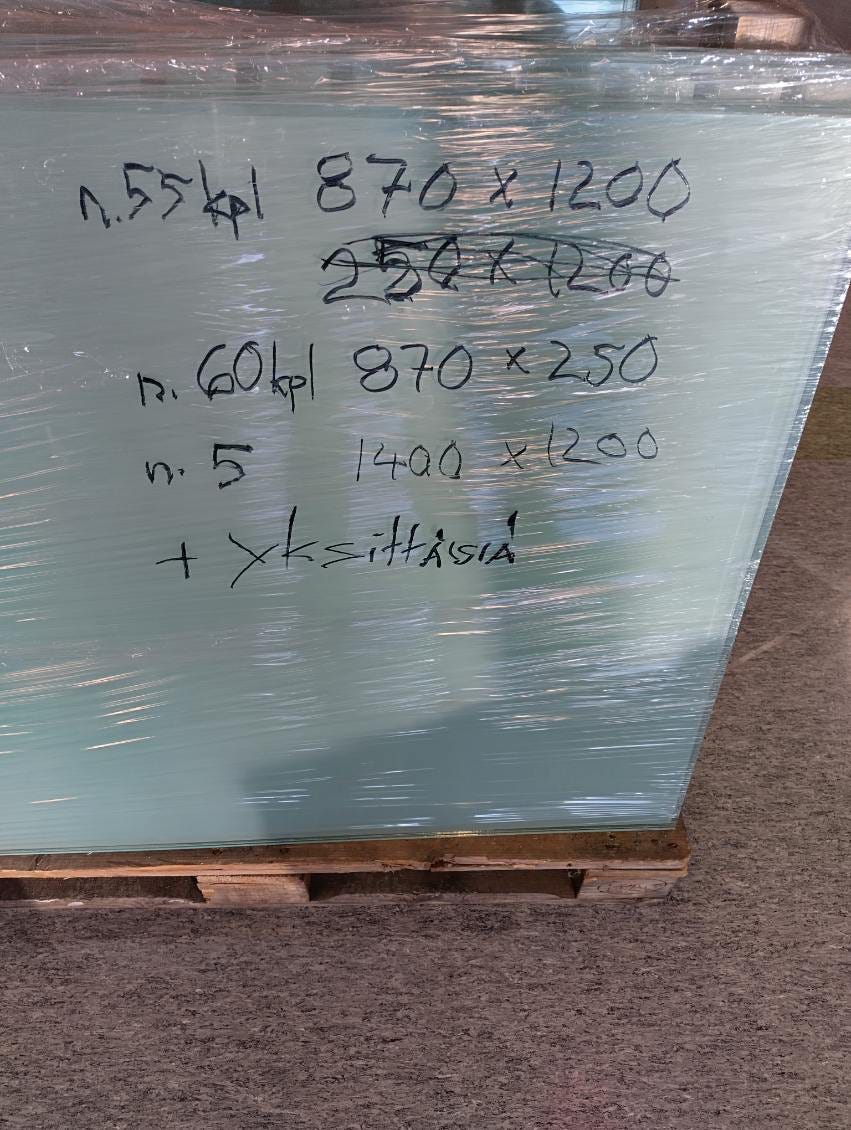 n.55kpl 870 x 1200
250 x 1200
n. 60kpl 870 x 250
n. 5 1400 x 1200
+ yksittäisiä